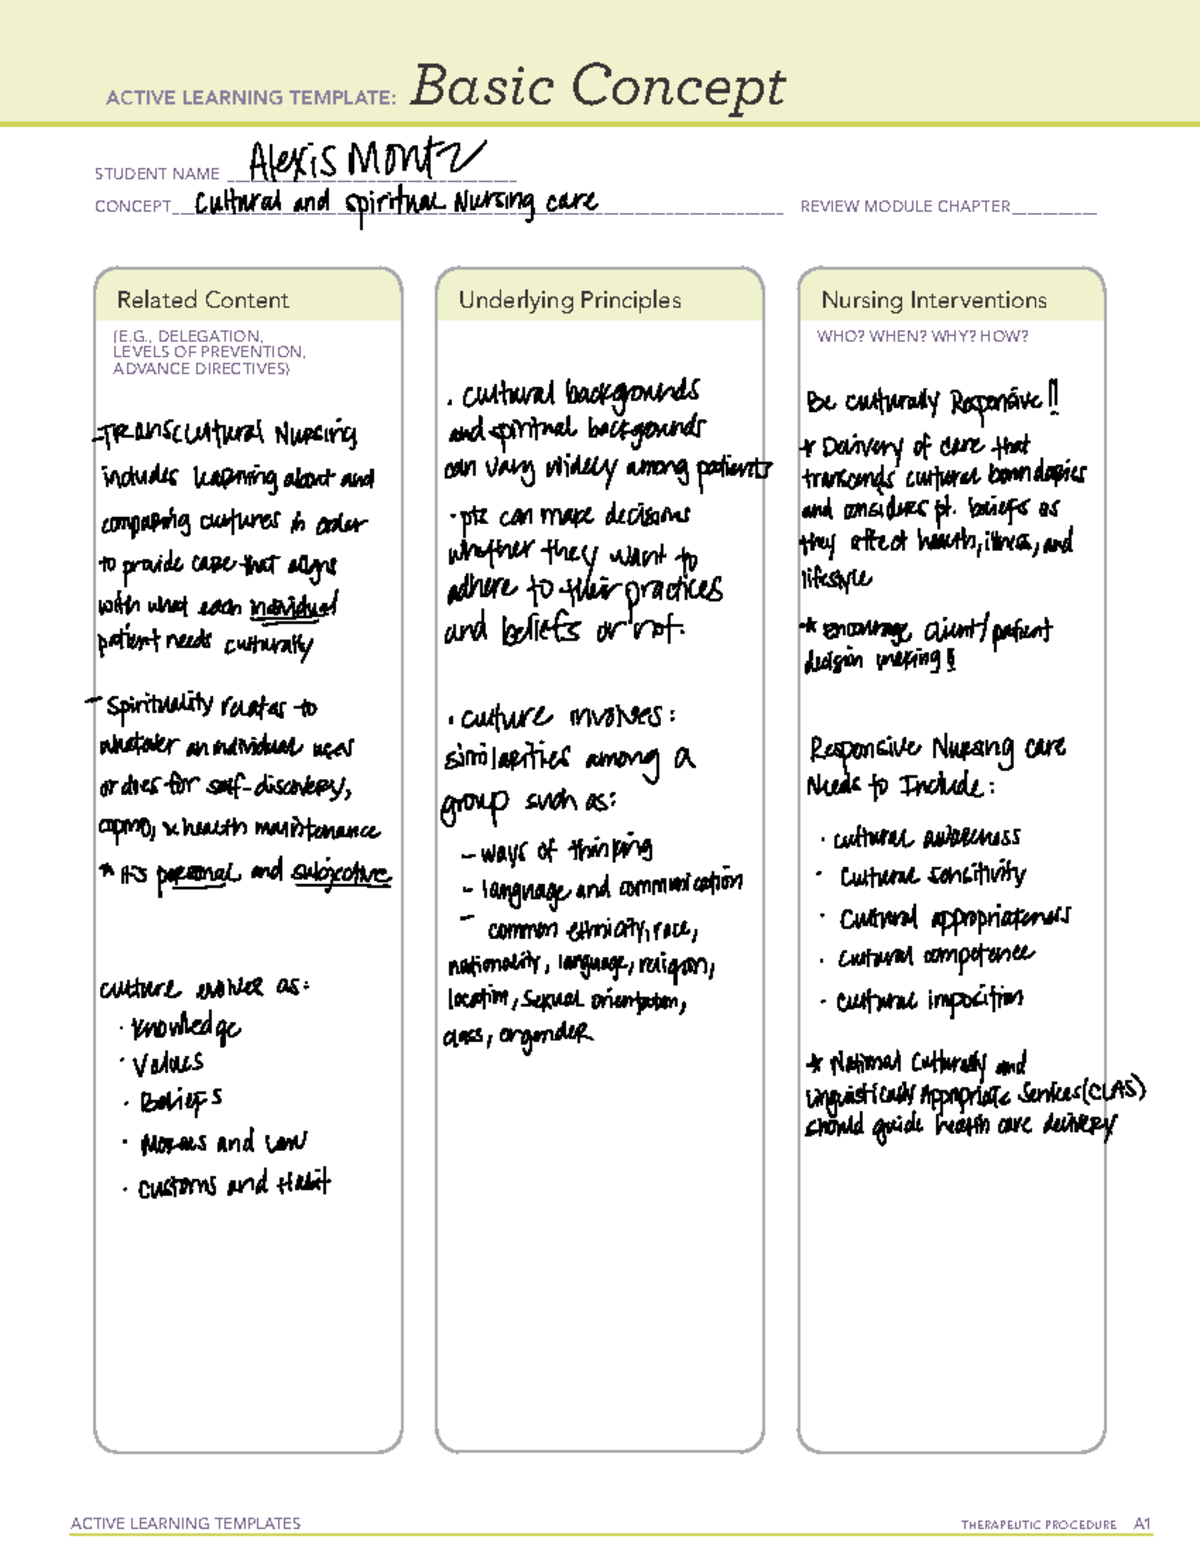 ACTIVE LEARNING TEMPLATE: Basic Concept
STUDENT NAME Alexis Montz
CONCEPT Cultural and spiritual Nursing care REVIEW MODULE CHAPTER
Related Content
(E.G., DELEGATION,
LEVELS OF PREVENTION,
ADVANCE DIRECTIVES)
-Transcultural Nursing
includes learning about and
comparing cultures in order
to provide care that aligns
with what each individual
patient needs culturally
- Spirituality relates to
whatever an individual uses
or does for self-discovery,
coping, & health maintenance
* its personal and subjective
culture evolves as:
· knowledge
· Values
· Beliefs
· Morals and Law
· Customs and Habit
Underlying Principles
· cultural backgrounds
and spiritual backgrounds
can vary widely among patients
· pts can make decisions
whether they want to
adhere to their practices
and beliefs or not.
· culture involves:
similarities among a
group such as:
- ways of thinking
- language and communication
- common ethnicity, race,
nationality, language, religion,
location, sexual orientation,
class, or gender
Nursing Interventions
WHO? WHEN? WHY? HOW?
Be culturally Responsive!!
* Delivery of care that
transcends cultural boundaries
and considers pt. beliefs as
they affect health, illness, and
lifestyle
* encourage client/patient
decision making!
Responsive Nursing care
Needs to Include:
· cultural awareness
· Cultural sensitivity
· Cultural appropriateness
· Cultural competence
· Cultural imposition
* National Culturally and
Linguistically Appropriate Services (CLAS)
should guide health care delivery
ACTIVE LEARNING TEMPLATES
THERAPEUTIC PROCEDURE A1